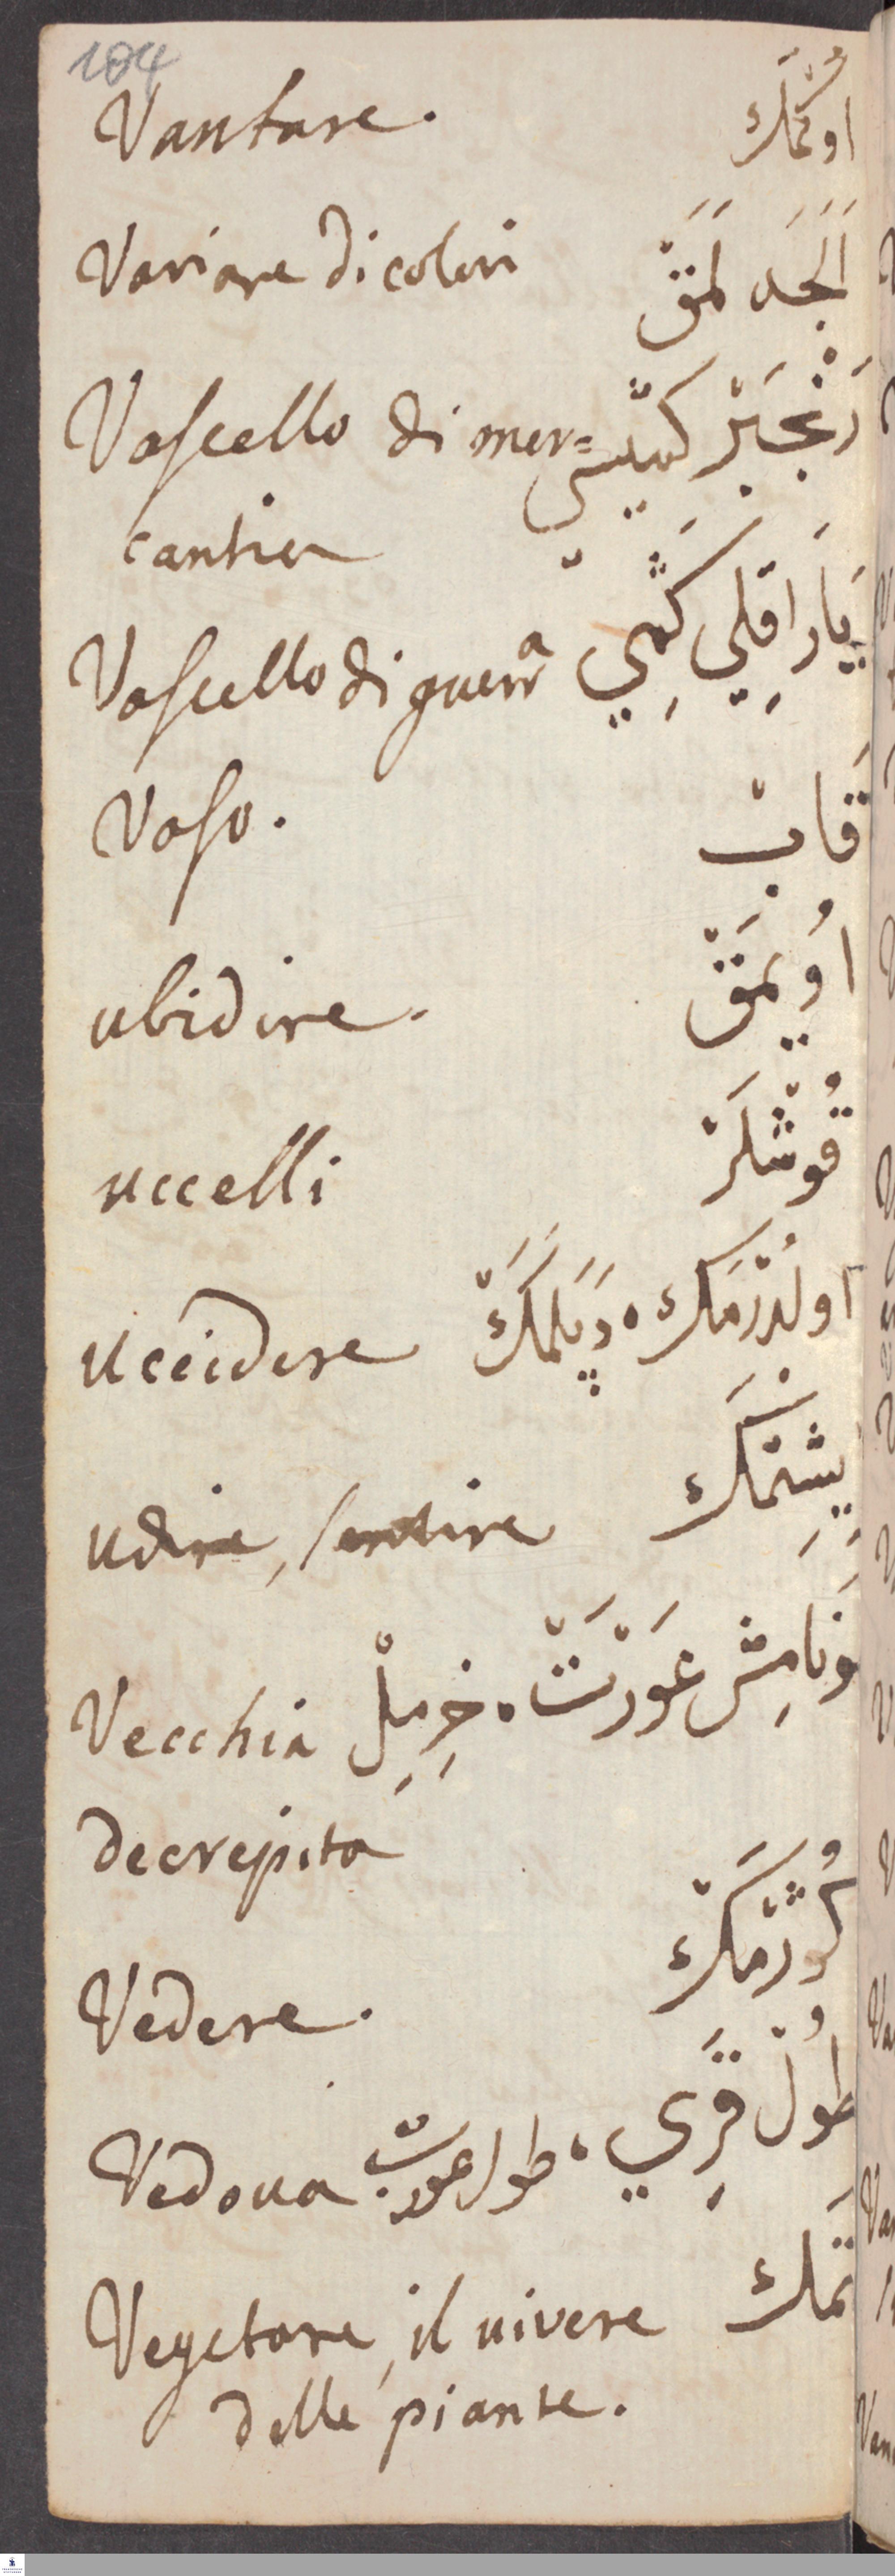 104
Vantare. اوكُمَك
Variare di colori اَلَجَه لَمَقْ
Vascello di mer= رَنْجَبَرْ كميسى
cantia
Vascello di guerra يَارَاقِلِي كَمِي
Vaso. قَابْ
ubidire. اُويمَقْ
uccelli قُوشْلَرْ
uccidere اولدُرْمَك، دَپَلَمَكْ
udire, sentire يشِتْمَك
Vecchia عَوْرَتْ
decrepita
Vedere. كُورْمَكْ
Vedoua طُولْ قَرِي، طول عورت
Vegetare, il vivere
delle piante.